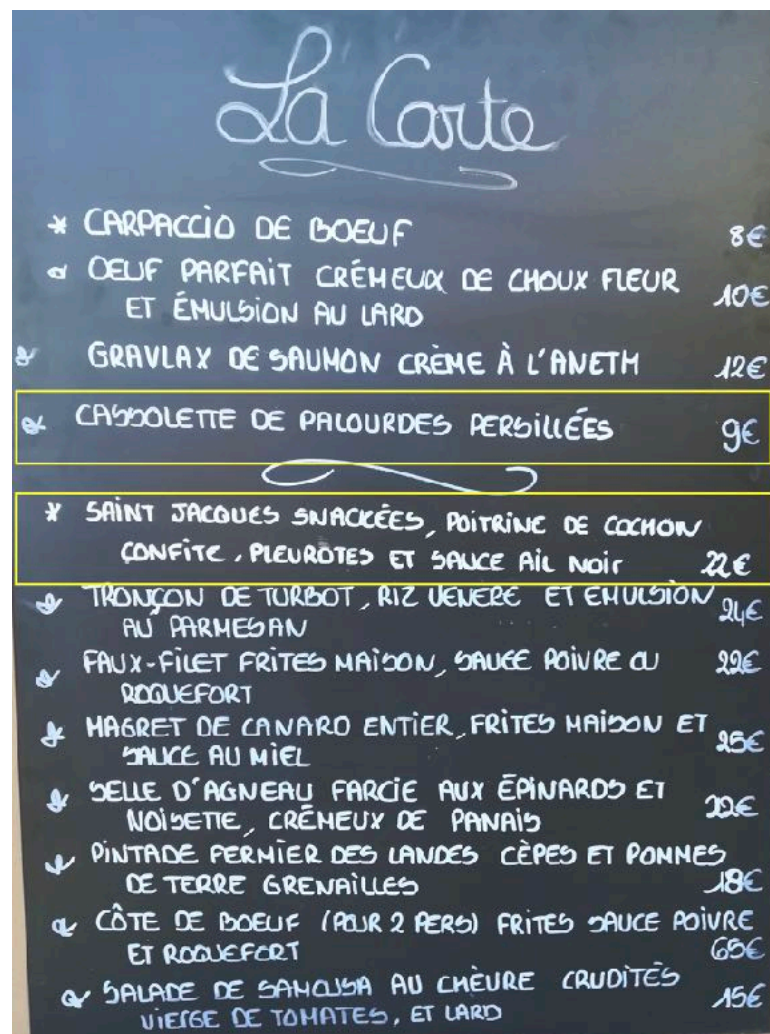 La Carte
* CARPACCIO DE BOEUF 8€
OEUF PARFAIT CRÉMEUX DE CHOUX FLEUR
ET ÉMULSION AU LARD 10€
GRAVLAX DE SAUMON CRÈME À L'ANETH 12€
CASSOLETTE DE PALOURDES PERSILLÉES 9€
* SAINT JACQUES SNACKÉES, POITRINE DE COCHON
CONFITE, PLEUROTES ET SAUCE AIL NOIR 22€
TRONÇON DE TURBOT, RIZ VENERE ET EMULSION
AU PARMESAN 24€
FAUX-FILET FRITES MAISON, SAUCE POIVRE OU
ROQUEFORT 22€
MAGRET DE CANARD ENTIER, FRITES MAISON ET
SAUCE AU MIEL 25€
SELLE D'AGNEAU FARCIE AUX ÉPINARDS ET
NOISETTE, CRÉMEUX DE PANAIS 22€
PINTADE FERMIER DES LANDES CÈPES ET POMMES
DE TERRE GRENAILLES 18€
CÔTE DE BOEUF (POUR 2 PERS) FRITES SAUCE POIVRE
ET ROQUEFORT 65€
SALADE DE SAMOUSA AU CHÈVRE CRUDITÉS
VIERGE DE TOMATES, ET LARD 15€